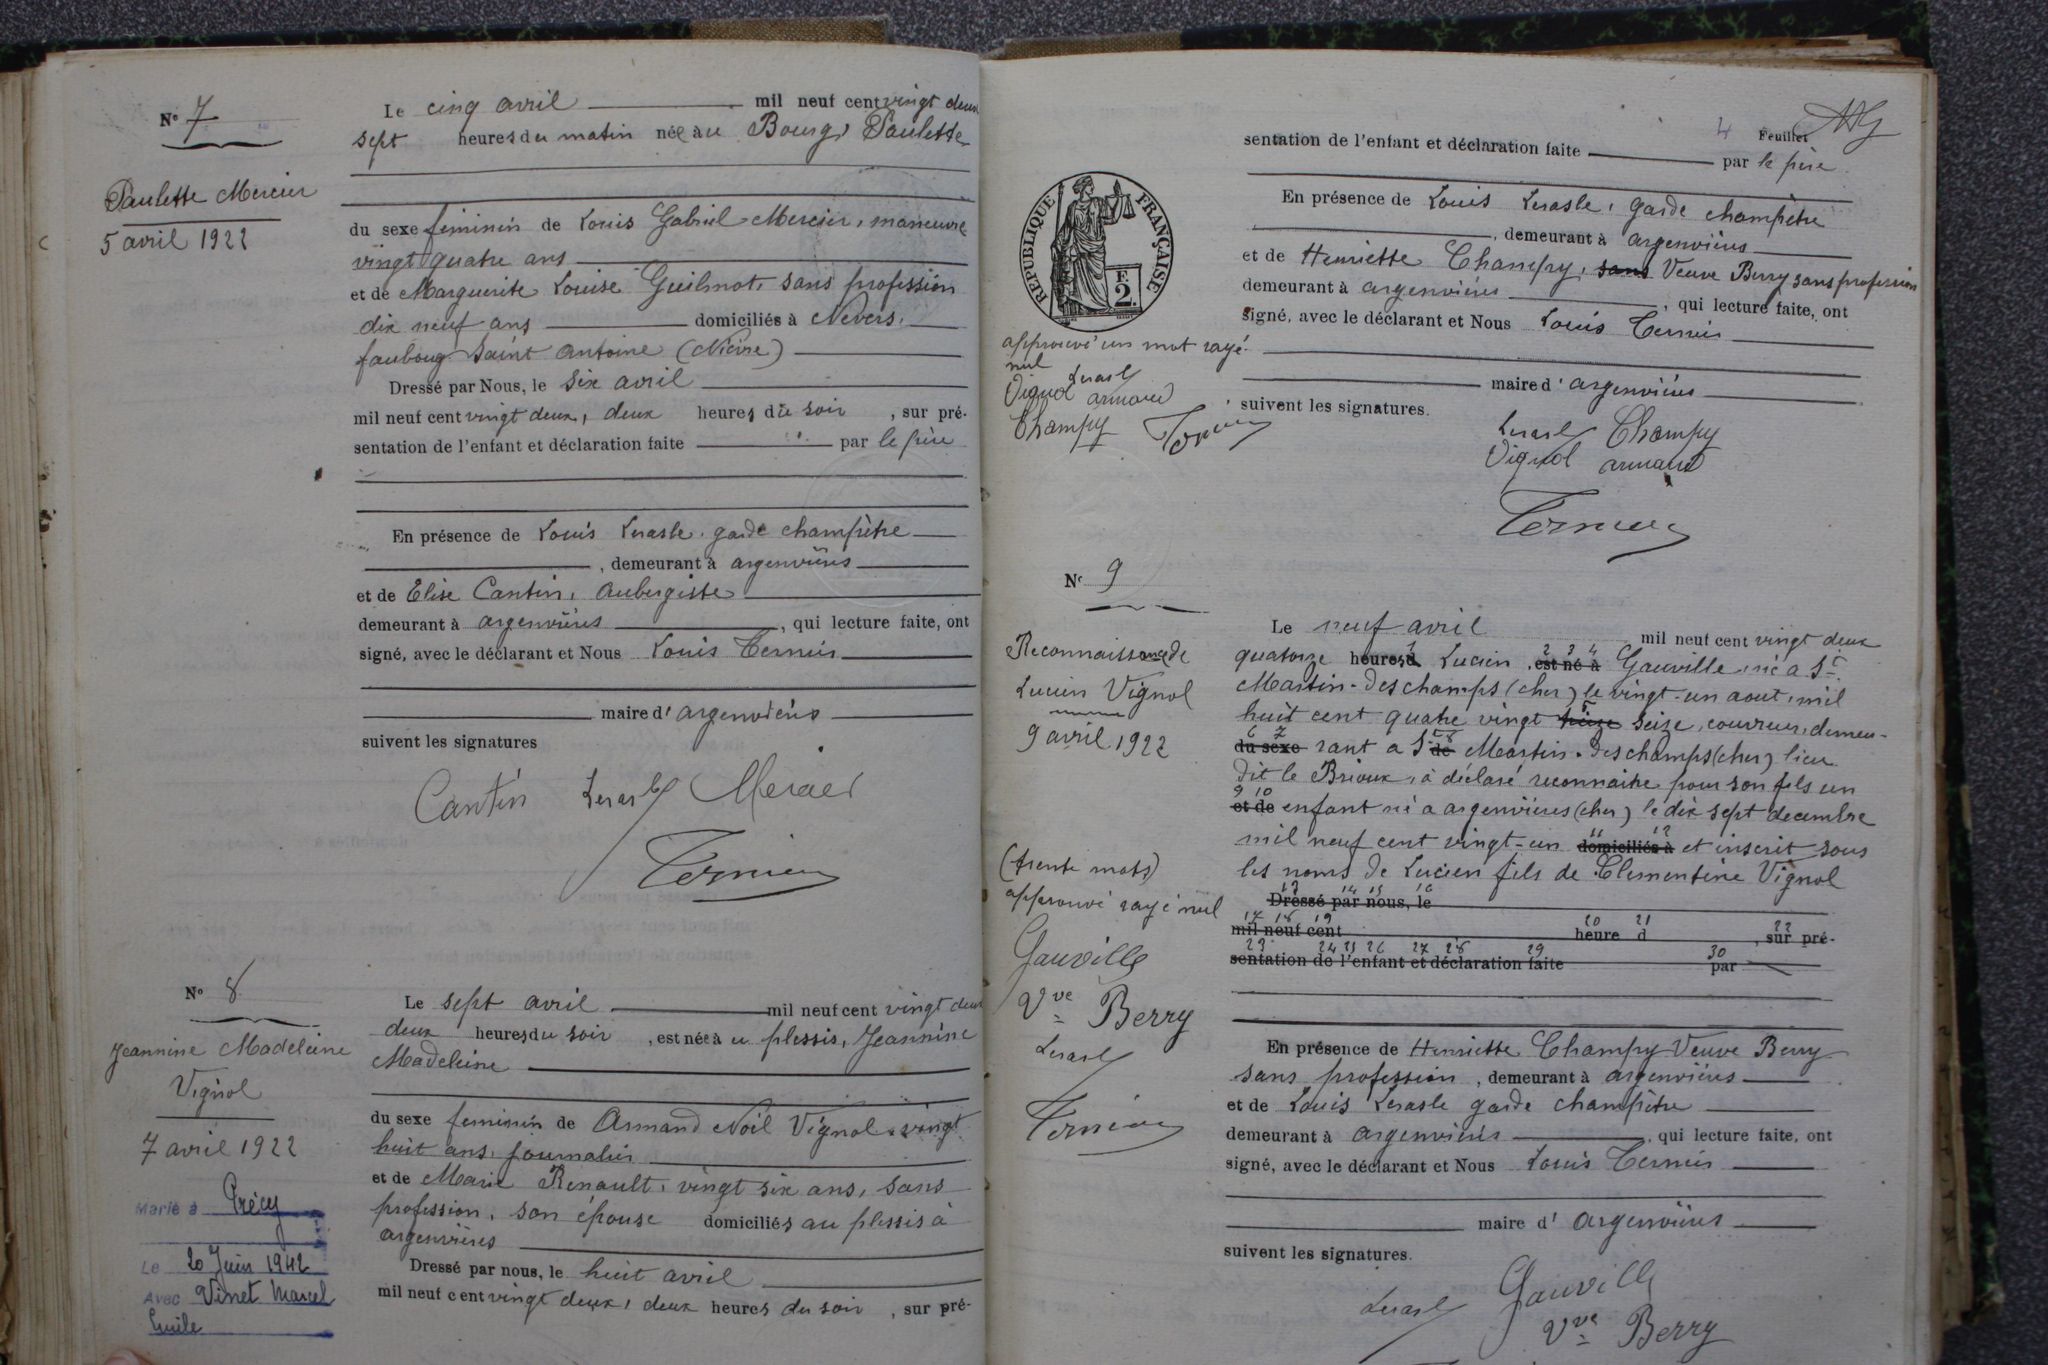 N° 7
Paulette Mercier
5 avril 1922
Le cinq avril mil neuf cent vingt deux
sept heures du matin née au Bourg, Paulette
du sexe féminin de Louis Gabriel Mercier, manœuvre
vingt quatre ans
et de Marguerite Louise Guilmot, sans profession
dix neuf ans domiciliés à Nevers,
faubourg Saint Antoine (Nièvre)
Dressé par Nous, le six avril
mil neuf cent vingt deux, deux heures du soir, sur pré-
sentation de l'enfant et déclaration faite par le père
En présence de Louis Lerasle, garde champêtre
, demeurant à argenvières
et de Elise Cantin, Aubergiste
demeurant à argenvières, qui lecture faite, ont
signé, avec le déclarant et Nous Louis Ternier
maire d'argenvières
suivent les signatures
Cantin Lerasle Mercier
Ternier
N° 8
Jeannine Madeleine
Vignol
7 avril 1922
Marié à Précy
Le 20 Juin 1942
Avec Vinet Marcel
Emile
Le sept avril mil neuf cent vingt deux
deux heures du soir, est née à u plessis, Jeannine
Madeleine
du sexe feminin de Armand Noël Vignol, vingt
huit ans, journalier
et de Marie Renault, vingt six ans, sans
profession, son épouse domiciliés au plessis à
argenvières
Dressé par nous, le huit avril
mil neuf cent vingt deux, deux heures du soir, sur pré-
4 Feuillet
sentation de l'enfant et déclaration faite par le père
En présence de Louis Lerasle, garde champêtre
, demeurant à argenvières
et de Henriette Champy, sans Veuve Berry sans profession
demeurant à argenvières, qui lecture faite, ont
signé, avec le déclarant et Nous Louis Ternier
maire d'argenvières
suivent les signatures.
Lerasle Champy
Vignol armand
Ternier
REPUBLIQUE FRANÇAISE
F.
2.
approuvé un mot rayé
nul
Lerasle
Vignol armand
Champy Ternier
N° 9
Reconnaissance de
Lucien Vignol
9 avril 1922
(trente mots)
approuvé rayé nul
Gauville
Vve Berry
Lerasle
Ternier
Le neuf avril mil neuf cent vingt deux
1 2 3 4
quatorze heures d Lucien, est né à Gauville, né a St
Martin-des champs (cher) le vingt-un aout, mil
5
huit cent quatre vingt treize seize, couvreur, demeu-
6 7 8
du sexe rant a St de Martin-des champs (cher) lieu
dit le Brioux, à déclaré reconnaitre pour son fils un
9 10
et de enfant né a argenvières (cher) le dix sept decembre
11 12
mil neuf cent vingt-un domiciliés à et inscrit sous
les noms de Lucien fils de Clementine Vignol
13 14 15 16
Dressé par nous, le
17 18 19 20 21 22
mil neuf cent heure d, sur pré-
23 24 25 26 27 28 29 30
sentation de l'enfant et déclaration faite par
En présence de Henriette Champy Veuve Berry
sans profession, demeurant à argenvières
et de Louis Lerasle garde champêtre
demeurant à argenvières, qui lecture faite, ont
signé, avec le déclarant et Nous Louis Ternier
maire d'argenvières
suivent les signatures.
Lerasle Gauville
Vve Berry